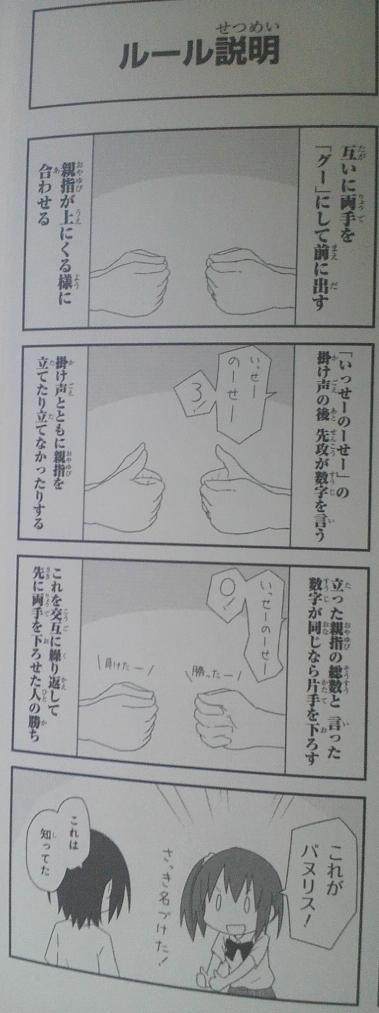 ルール説明
互いに両手を
「グー」にして前に出す
親指が上にくる様に
合わせる
「いっせーのーせー」の
掛け声の後 先攻が数字を言う
いっせー
のーせー
3!
掛け声とともに親指を
立てたり立てなかったりする
立った親指の総数と 言った
数字が同じなら片手を下ろす
いっせーのーせー
0!
勝ったー!
負けたー!
これを交互に繰り返して
先に両手を下ろせた人の勝ち
これが
バヌリス!
さっき名づけた!
これは
知ってた